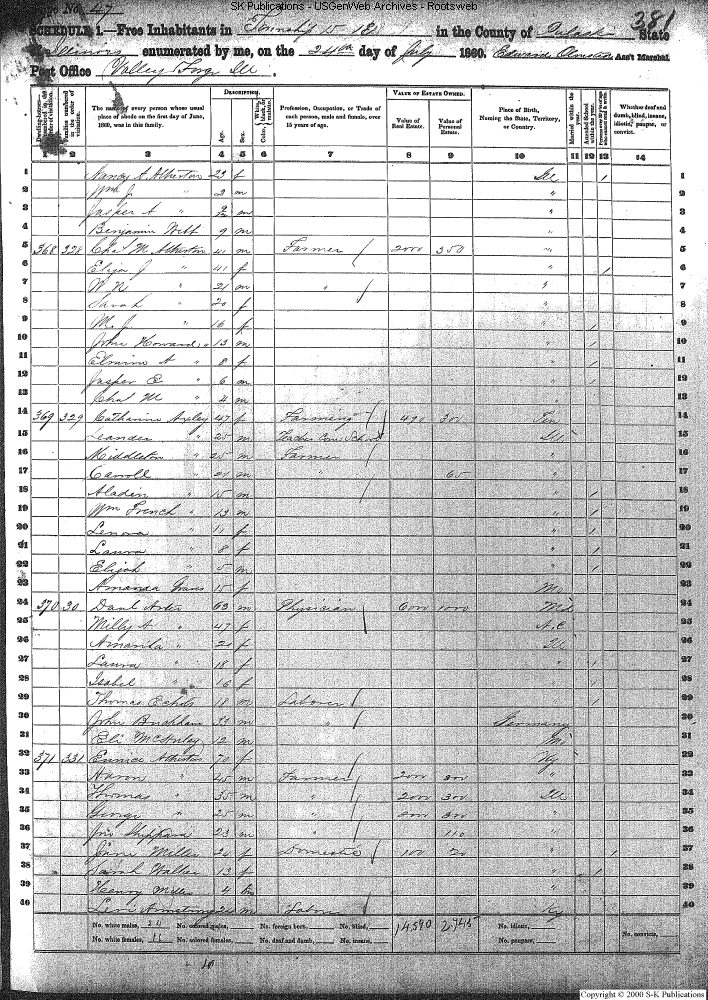 SK Publications - USGenWeb Archives - Rootsweb
Page No. 47
381
SCHEDULE 1.—Free Inhabitants in Township 15 1E in the County of Pulaski State
of Illinois enumerated by me, on the 24th day of July 1860. Edward Olmsted Ass't Marshal.
Post Office Valley Forge Ill.
Dwelling-houses—numbered in the order of visitation.
Families numbered in the order of visitation.
The name of every person whose usual place of abode on the first day of June, 1860, was in this family.
DESCRIPTION.
Age.
Sex.
Color, White, black, or mulatto.
Profession, Occupation, or Trade of each person, male and female, over 15 years of age.
VALUE OF ESTATE OWNED.
Value of Real Estate.
Value of Personal Estate.
Place of Birth, Naming the State, Territory, or Country.
Married within the year.
Attended School within the year.
Whether deaf and dumb, blind, insane, idiotic, pauper, or convict.
1 2 3 4 5 6 7 8 9 10 11 12 13 14
1 Nancy A. Atherton 23 f Ill / 1
2 Wm J. " 2 m " 2
3 Jasper A " m " 3
4 Benjamin Webb 9 m " 4
5 368 328 Chas M Atherton 41 m Farmer / 2000 350 " 5
6 Eliza J " 41 f " / 6
7 W. N. " 21 m " / " 7
8 Sarah " 20 f " 8
9 M. J. " 16 f " / 9
10 John Howard " 13 m " / 10
11 Elmina A " 8 f " / 11
12 Jasper E " 6 m " / 12
13 Chas M " 4 m " 13
14 369 329 Catharine 47 f Farming / 400 300 Ten 14
15 Leander " 25 m Teacher Com. School Ill 15
16 Middleton " 25 m Farmer / " 16
17 Carroll 21 m " 65 " 17
18 Aladin " 15 m / " / 18
19 Wm French " 13 m " / 19
20 Lenora " 11 f " / 20
21 Laura " 8 f " / 21
22 Elijah " 5 m " / 22
23 Amanda 15 f 23
24 370 30 Danl 63 m Physician 6000 1000 Md 24
25 Milly A " 47 f / N.C 25
26 " 20 f Ill 26
27 Laura " 18 f " / 27
28 Isabel " 16 f " / 28
29 Thomas Echols 18 m Laborer / " / 29
30 John 33 m " / Germany 30
31 Eli 12 m Mo 31
32 371 331 Eunice Atherton 70 f Ky 32
33 Aaron " 45 m Farmer / 2000 300 " 33
34 Thomas " 35 m " / 2000 300 Ill 34
35 George " 25 m " / 2000 300 " 35
36 Jno 23 m " / 110 " 36
37 Jane Miller 24 f Domestic / 100 50 " / 37
38 Sarah 13 f " / 38
39 Henry Miller 4 m " 39
40 Levi Armstrong 24 m Laborer / Ky 40
No. white males, No. colored males, No. foreign born, No. blind, 14,590 2,945 No. idiotic, No. convicts,
No. white females, No. colored females, No. deaf and dumb, No. insane, No. paupers,
Copyright © 2000 S-K Publications